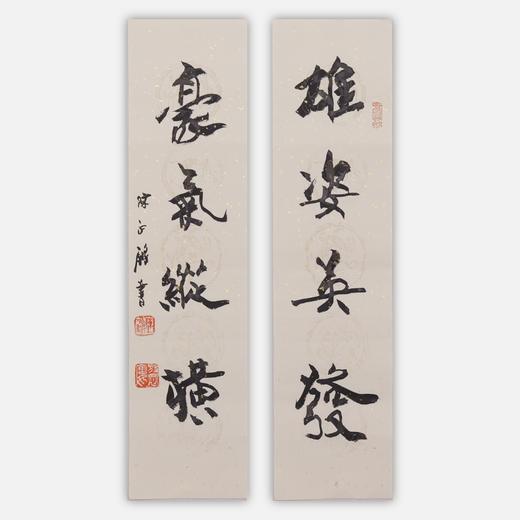 雄姿英發
豪氣縱橫